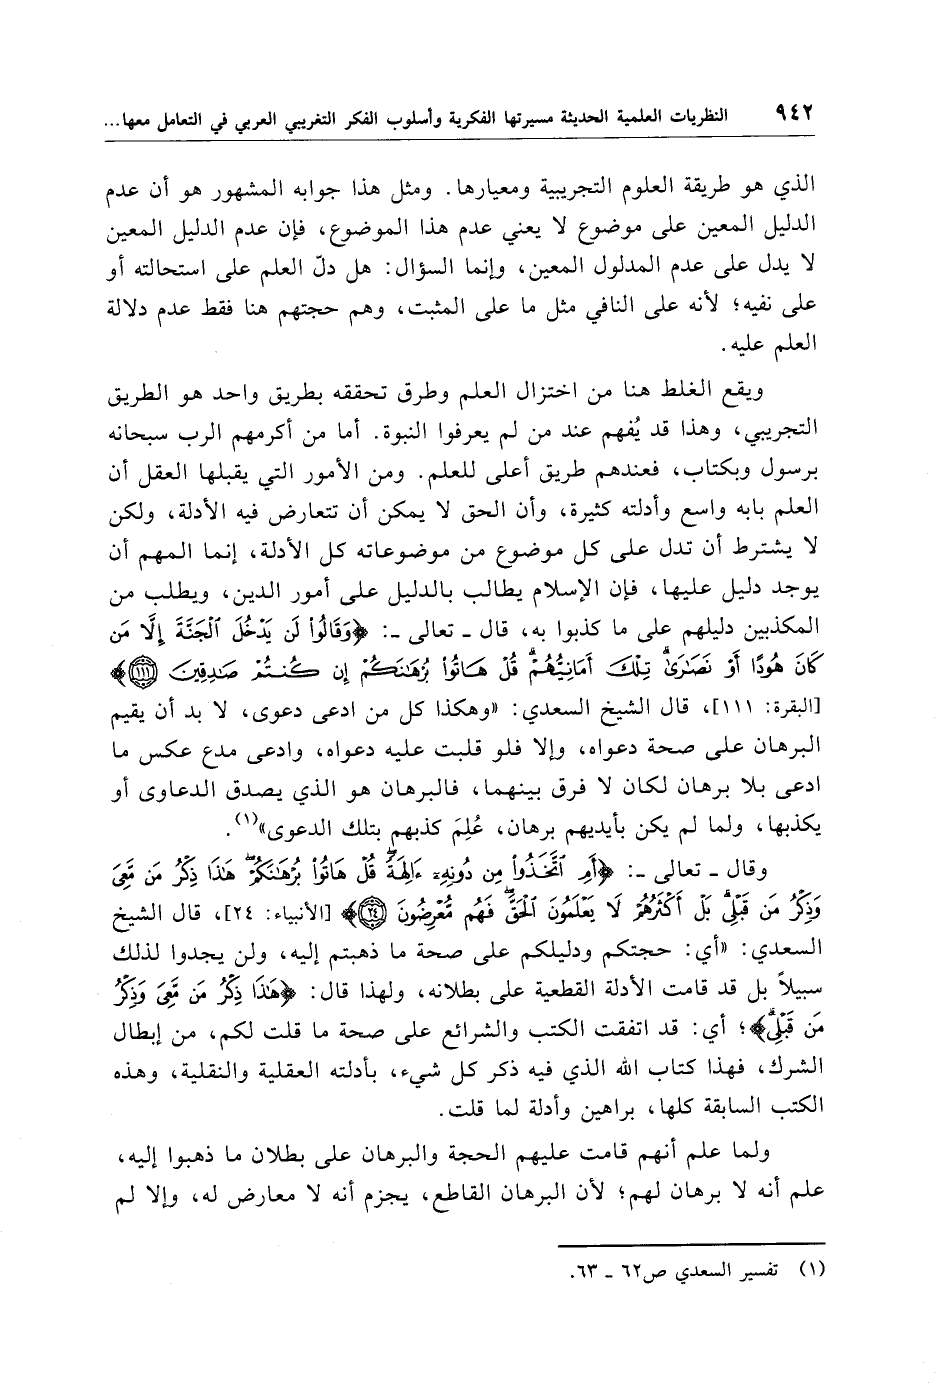 ٩٤٢ النظريات العلمية الحديثة مسيرتها الفكرية وأسلوب الفكر التغريبي العربي في التعامل معها...
الذي هو طريقة العلوم التجريبية ومعيارها. ومثل هذا جوابه المشهور هو أن عدم
الدليل المعين على موضوع لا يعني عدم هذا الموضوع، فإن عدم الدليل المعين
لا يدل على عدم المدلول المعين، وإنما السؤال: هل دلّ العلم على استحالته أو
على نفيه؛ لأنه على النافي مثل ما على المثبت، وهم حجتهم هنا فقط عدم دلالة
العلم عليه.
ويقع الغلط هنا من اختزال العلم وطرق تحققه بطريق واحد هو الطريق
التجريبي، وهذا قد يُفهم عند من لم يعرفوا النبوة. أما من أكرمهم الرب سبحانه
برسول وبكتاب، فعندهم طريق أعلى للعلم. ومن الأمور التي يقبلها العقل أن
العلم بابه واسع وأدلته كثيرة، وأن الحق لا يمكن أن تتعارض فيه الأدلة، ولكن
لا يشترط أن تدل على كل موضوع من موضوعاته كل الأدلة، إنما المهم أن
يوجد دليل عليها، فإن الإسلام يطالب بالدليل على أمور الدين، ويطلب من
المكذبين دليلهم على ما كذبوا به، قال ـ تعالى ـ: ﴿وَقَالُوا۟ لَن يَدْخُلَ ٱلْجَنَّةَ إِلَّا مَن
كَانَ هُودًا أَوْ نَصَـٰرَىٰۗ تِلْكَ أَمَانِيُّهُمْۗ قُلْ هَاتُوا۟ بُرْهَـٰنَكُمْ إِن كُنتُمْ صَـٰدِقِينَ ﴿١١١﴾﴾
[البقرة: ١١١]، قال الشيخ السعدي: «وهكذا كل من ادعى دعوى، لا بد أن يقيم
البرهان على صحة دعواه، وإلا فلو قلبت عليه دعواه، وادعى مدع عكس ما
ادعى بلا برهان لكان لا فرق بينهما، فالبرهان هو الذي يصدق الدعاوى أو
يكذبها، ولما لم يكن بأيديهم برهان، عُلِمَ كذبهم بتلك الدعوى»(١).
وقال ـ تعالى ـ: ﴿أَمِ ٱتَّخَذُوا۟ مِن دُونِهِۦٓ ءَالِهَةًۖ قُلْ هَاتُوا۟ بُرْهَـٰنَكُمْۖ هَـٰذَا ذِكْرُ مَن مَّعِىَ
وَذِكْرُ مَن قَبْلِىۗ بَلْ أَكْثَرُهُمْ لَا يَعْلَمُونَ ٱلْحَقَّۖ فَهُم مُّعْرِضُونَ ﴿٢٤﴾﴾ [الأنبياء: ٢٤]، قال الشيخ
السعدي: «أي: حجتكم ودليلكم على صحة ما ذهبتم إليه، ولن يجدوا لذلك
سبيلاً بل قد قامت الأدلة القطعية على بطلانه، ولهذا قال: ﴿هَـٰذَا ذِكْرُ مَن مَّعِىَ وَذِكْرُ
مَن قَبْلِىۗ﴾؛ أي: قد اتفقت الكتب والشرائع على صحة ما قلت لكم، من إبطال
الشرك، فهذا كتاب الله الذي فيه ذكر كل شيء، بأدلته العقلية والنقلية، وهذه
الكتب السابقة كلها، براهين وأدلة لما قلت.
ولما علم أنهم قامت عليهم الحجة والبرهان على بطلان ما ذهبوا إليه،
علم أنه لا برهان لهم؛ لأن البرهان القاطع، يجزم أنه لا معارض له، وإلا لم
(١) تفسير السعدي ص٦٢ ـ ٦٣.